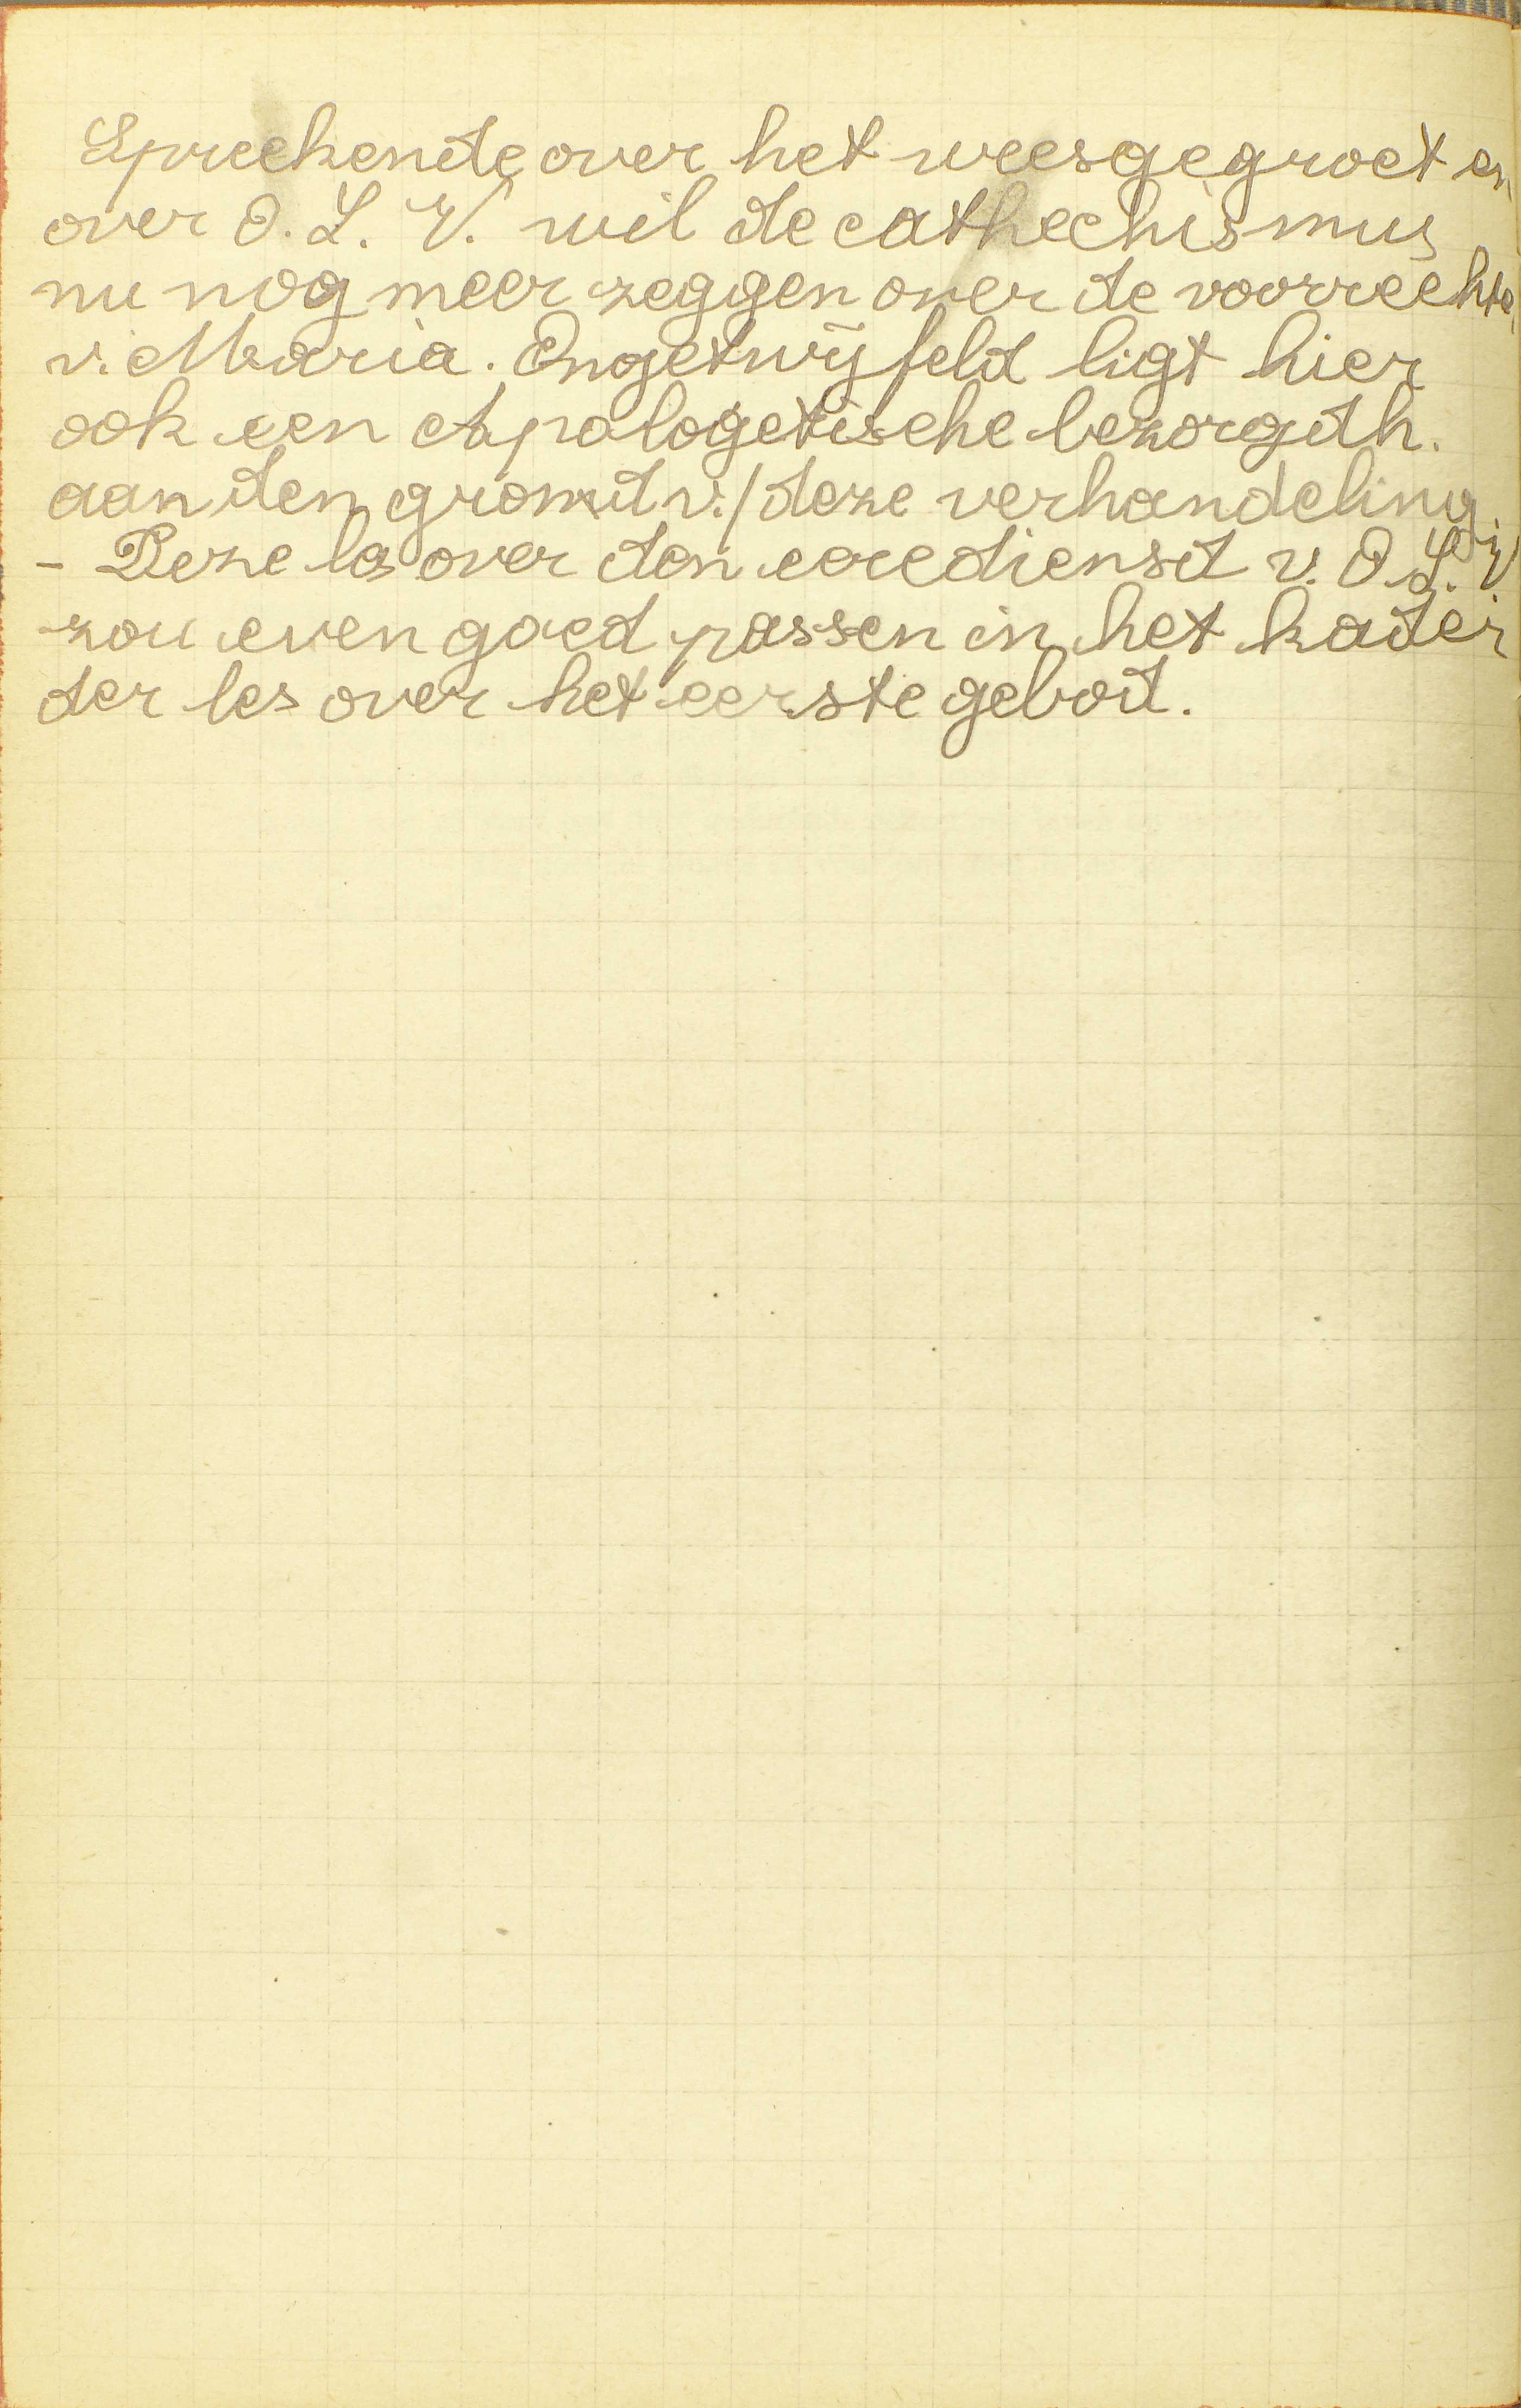 Spreekende over het weesgegroet en
over O. L. V. wil de cathechismus
nu nog meer zeggen over de voorrechte
v. Maria. Ongetwijfeld ligt hier
ook een Apologetische bezorgdh.
aan den grond v./deze verhandeling.
- Deze les over den eeredienst v. O. L. V.
zou even goed passen in het kader
der les over het eerste gebod.